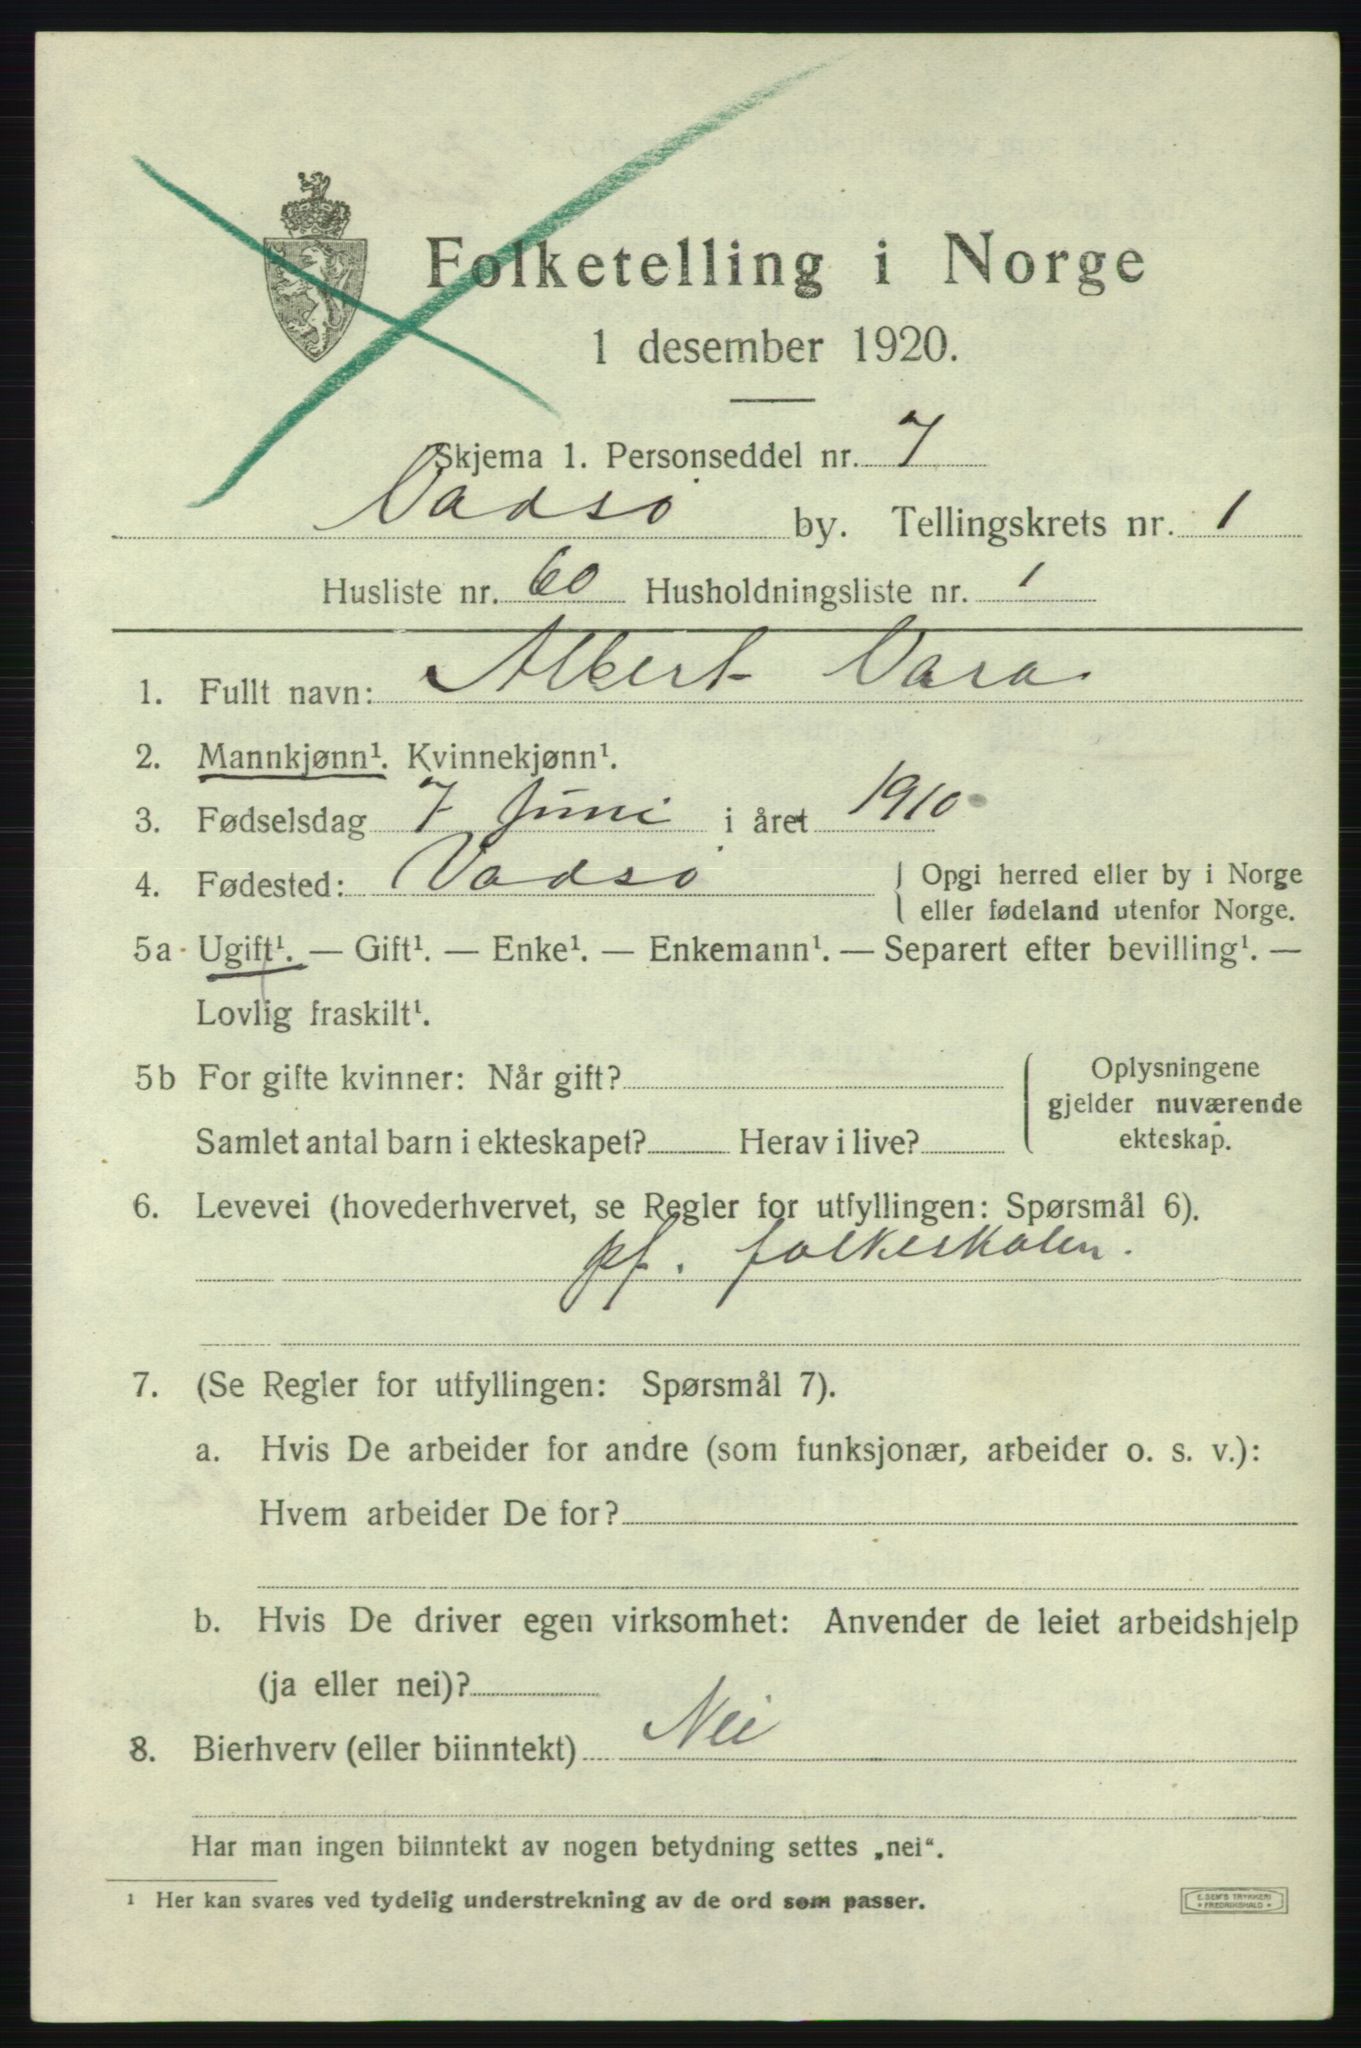 Folketelling i Norge
1 desember 1920.
Skjema 1. Personseddel nr. 7
Vadsø by. Tellingskrets nr. 1
Husliste nr. 60 Husholdningsliste nr. 1
1. Fullt navn: Albert Vara
2. Mannkjønn¹. Kvinnekjønn¹.
3. Fødselsdag 7 Juni i året 1910
4. Fødested: Vadsø { Opgi herred eller by i Norge
eller fødeland utenfor Norge.
5a Ugift¹. — Gift¹. — Enke¹. — Enkemann¹. — Separert efter bevilling¹. —
Lovlig fraskilt¹.
5b For gifte kvinner: Når gift?
Samlet antal barn i ekteskapet? Herav i live?
Oplysningene
gjelder nuværende
ekteskap.
6. Levevei (hovederhvervet, se Regler for utfyllingen: Spørsmål 6).
pf. folkeskolen.
7. (Se Regler for utfyllingen: Spørsmål 7).
a. Hvis De arbeider for andre (som funksjonær, arbeider o. s. v.):
Hvem arbeider De for?
b. Hvis De driver egen virksomhet: Anvender de leiet arbeidshjelp
(ja eller nei)?
8. Bierhverv (eller biinntekt) Nei
Har man ingen biinntekt av nogen betydning settes „nei“.
¹ Her kan svares ved tydelig understrekning av de ord som passer.
E. SEM'S TRYKKERI
FREDRIKSHALD